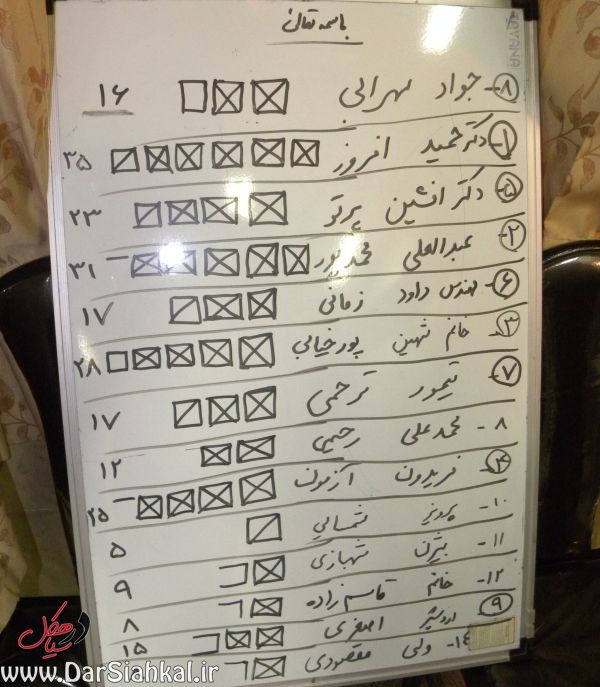 باسمه تعالی
KAYANA
۸- جواد مهرابی ۱۶
۱- دکتر حمید افروز ۳۵
۵- دکتر افشین پرتو ۲۳
۲- عبدالعلی محمدپور ۳۱
۶- مهندس داود زمانی ۱۷
۳- خانم شهین پورخیابی ۲۸
۷- تیمور ترحمی ۱۷
۸- محمدعلی رحیمی ۱۲
۴- فریدون آزمون ۲۵
۱۰- پرویز شمسایی ۵
۱۱- بیژن شهبازی ۹
۱۲- خانم قاسم زاده ۸
۹- اردشیر اصغری ۱۵
۱۴- ولی مقصودی
سیاهکل
www.DarSiahkal.ir